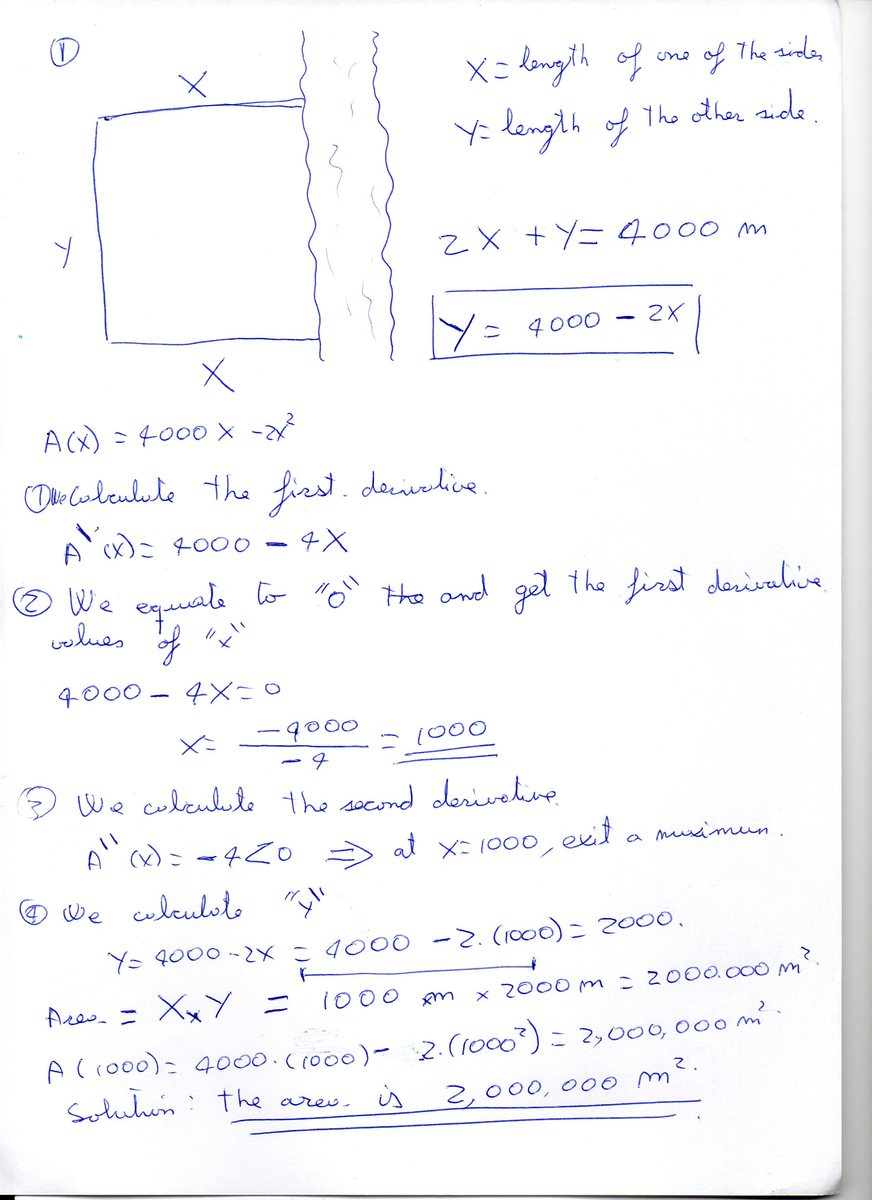 ①
X
X = length of one of the sides
Y = length of the other side.
Y
2X + Y = 4000 m
Y = 4000 - 2X
X
A(X) = 4000X - 2X²
① We Calculate the first derivative.
A'(X) = 4000 - 4X
② We equate to "0" the and get the first derivative
values of "x"
4000 - 4X = 0
X = -4000 / -4 = 1000
③ We calculate the second derivative.
A''(X) = -4 < 0 ⇒ at X=1000, exit a maximum.
④ We calculate "y"
Y = 4000 - 2X = 4000 - 2.(1000) = 2000.
Area = X x Y = 1000 m x 2000 m = 2000.000 m².
A(1000) = 4000.(1000) - 2.(1000²) = 2,000,000 m².
Solution: the area is 2,000,000 m².